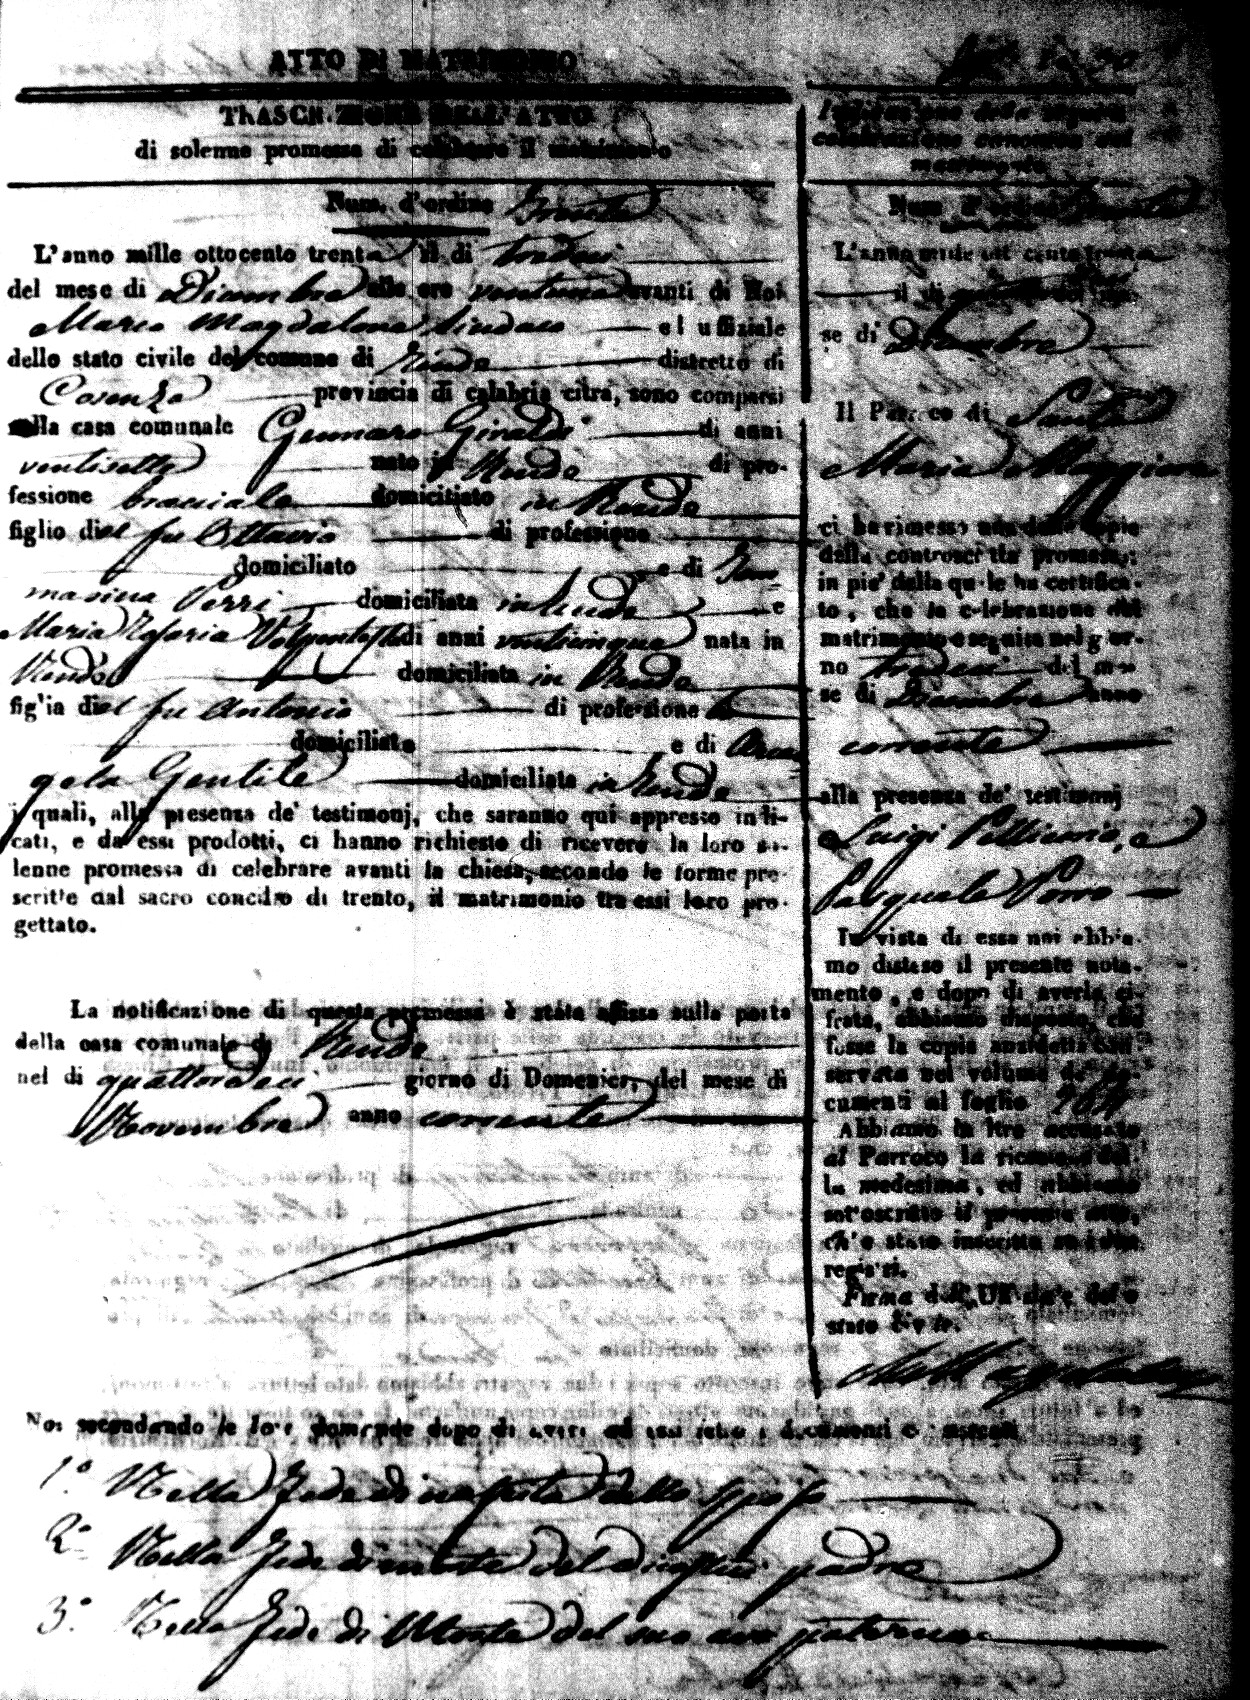 ATTO DI MATRIMONIO
TRASCRIZIONE DELL'ATTO
di solenne promessa di celebrare il matrimonio
Num. d'ordine Trenta
L'anno mille ottocento trenta il dì tredeci
del mese di Dicembre alle ore ventuna avanti di Noi
Marco Magdalone Sindaco ed uffiziale
dello stato civile del comune di Rende distretto di
Cosenza provincia di calabria citra, sono comparsi
nella casa comunale Gennaro Giraldi di anni
ventisette nato in Rende di pro-
fessione bracciale domiciliato in Rende
figlio del fu Ottavio di professione
domiciliato e di Tom-
masina Perri domiciliata in Rende e
Maria Rosaria di anni venticinque nata in
Rende domiciliata in Rende
figlia del fu Antonio di professione
domiciliato e di Arcan-
gela Gentile domiciliata in Rende
i quali, alla presenza de' testimonj, che saranno qui appresso indi-
cati, e da essi prodotti, ci hanno richiesto di ricevere la loro so-
lenne promessa di celebrare avanti la chiesa, secondo le forme pre-
scritte dal sacro concilio di trento, il matrimonio tra essi loro pro-
gettato.
La notificazione di questa promessa è stata affissa sulla porta
della casa comunale di Rende
nel dì quattordeci giorno di Domenica, del mese di
Novembre anno corrente
Noi secondando le loro domande dopo di aver ad essi letto i documenti
1.º Nella fede di nascita dello sposo
2.º Nella fede di morte del di costui padre
3.º Nella fede di Morte del suo avo paterno
celebrazione canonica del
matrimonio
Num. d'ordine Trenta
L'anno mille ottocento trenta
il dì
se di Dicembre
Il Parroco di Santa
Maria Maggiore
ci ha rimesso una delle copie
della controscritta promessa;
in piè della quale ha certifica-
to, che la celebrazione del
matrimonio è seguita nel gior-
no tredeci del me-
se di Dicembre anno
corrente
alla presenza de' testimonj
Luigi Pellicorio, e
Pasquale Porro
In vista di essa noi abbia-
mo disteso il presente nota-
mento, e dopo di averla ci-
frata, abbiamo disposto, che
fosse la copia anzidetta con-
servata nel volume de' do-
cumenti al foglio 264
Abbiamo in oltre accusato
al Parroco la ricezione del-
la medesima, ed abbiamo
sottoscritto il presente atto,
ch'è stato inscritto su i due
registri.
Firma dell'Uffiziale dello
stato Civile.